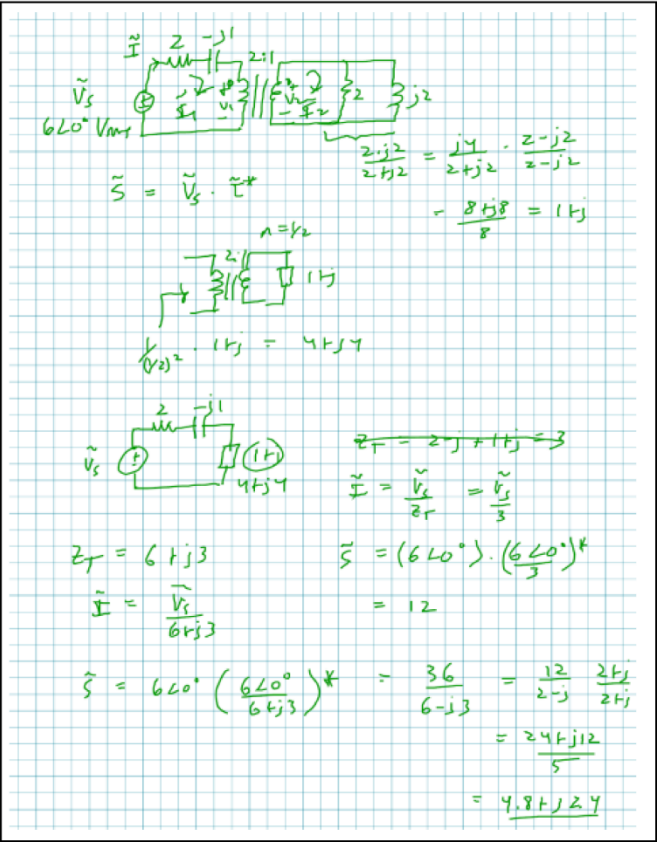 Ĩ 2 -j1
2:1
Ṽs
6∠0° Vrms
± I1 + V1 - + V2 - I2 2 j2
2·j2/2+j2 = j4/2+j2 · 2-j2/2-j2
S̃ = Ṽs · Ĩ*
= 8+j8/8 = 1+j
n=1/2
2:1
1+j
1/(1/2)² · 1+j = 4+j4
2 -j1
Ṽs ± 1+j
4+j4
ZT = 2-j+1+j = 3
Ĩ = Ṽs/ZT = Ṽs/3
ZT = 6+j3
S̃ = (6∠0°)·(6∠0°/3)*
Ĩ = Ṽs/6+j3
= 12
S̃ = 6∠0° (6∠0°/6+j3)* = 36/6-j3 = 12/2-j 2+j/2+j
= 24+j12/5
= 4.8+j2.4